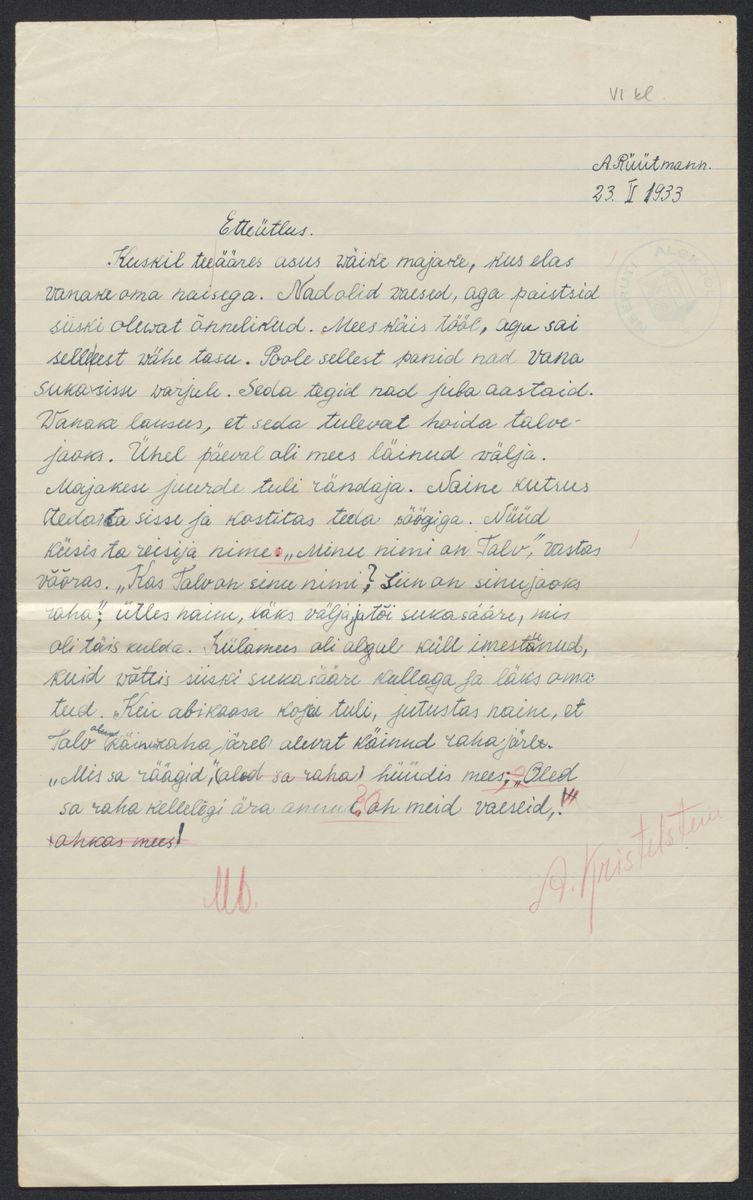 VI kl.
A. Rüütmann.
23. II 1933
Etteütlus.
Kuskil teeääres asus wäike majake, kus elas
vanake oma naisega. Nad olid vaesed, aga paistsid
siiski olewat õnnelikud. Mees käis tööl, aga sai
sellest wähe tasu. Poole sellest panid nad vana
suka sisse warjule. Seda tegid nad juba aastaid.
Wanake lausus, et seda tulevat hoida talve-
jaoks. Ühel päeval oli mees läinud wälja.
Majakese juurde tuli rändaja. Naine kutsus
teda sisse ja kostitas teda söögiga. Nüüd
küsis ta reisija nime. „Minu nimi on Talv", vastas
võõras. „Kas Talv on sinu nimi? Siin on sinu jaoks
raha", ütles naine, läks välja ja tõi sukasääre, mis
oli täis kulda. Külamees oli algul küll imestanud,
kuid võttis siiski sukasääre kullaga ja läks oma
teed. Kui abikaasa koju tuli, jutustas naine, et
Talv (käinu raha järel) olevat käinud raha järle.
„Mis sa räägid", (aled sa raha) hüüdis mees, „Oled
sa raha kellelegi ära annud? oh meid vaeseid,!"
ahkas mees!
A. Kristelstein